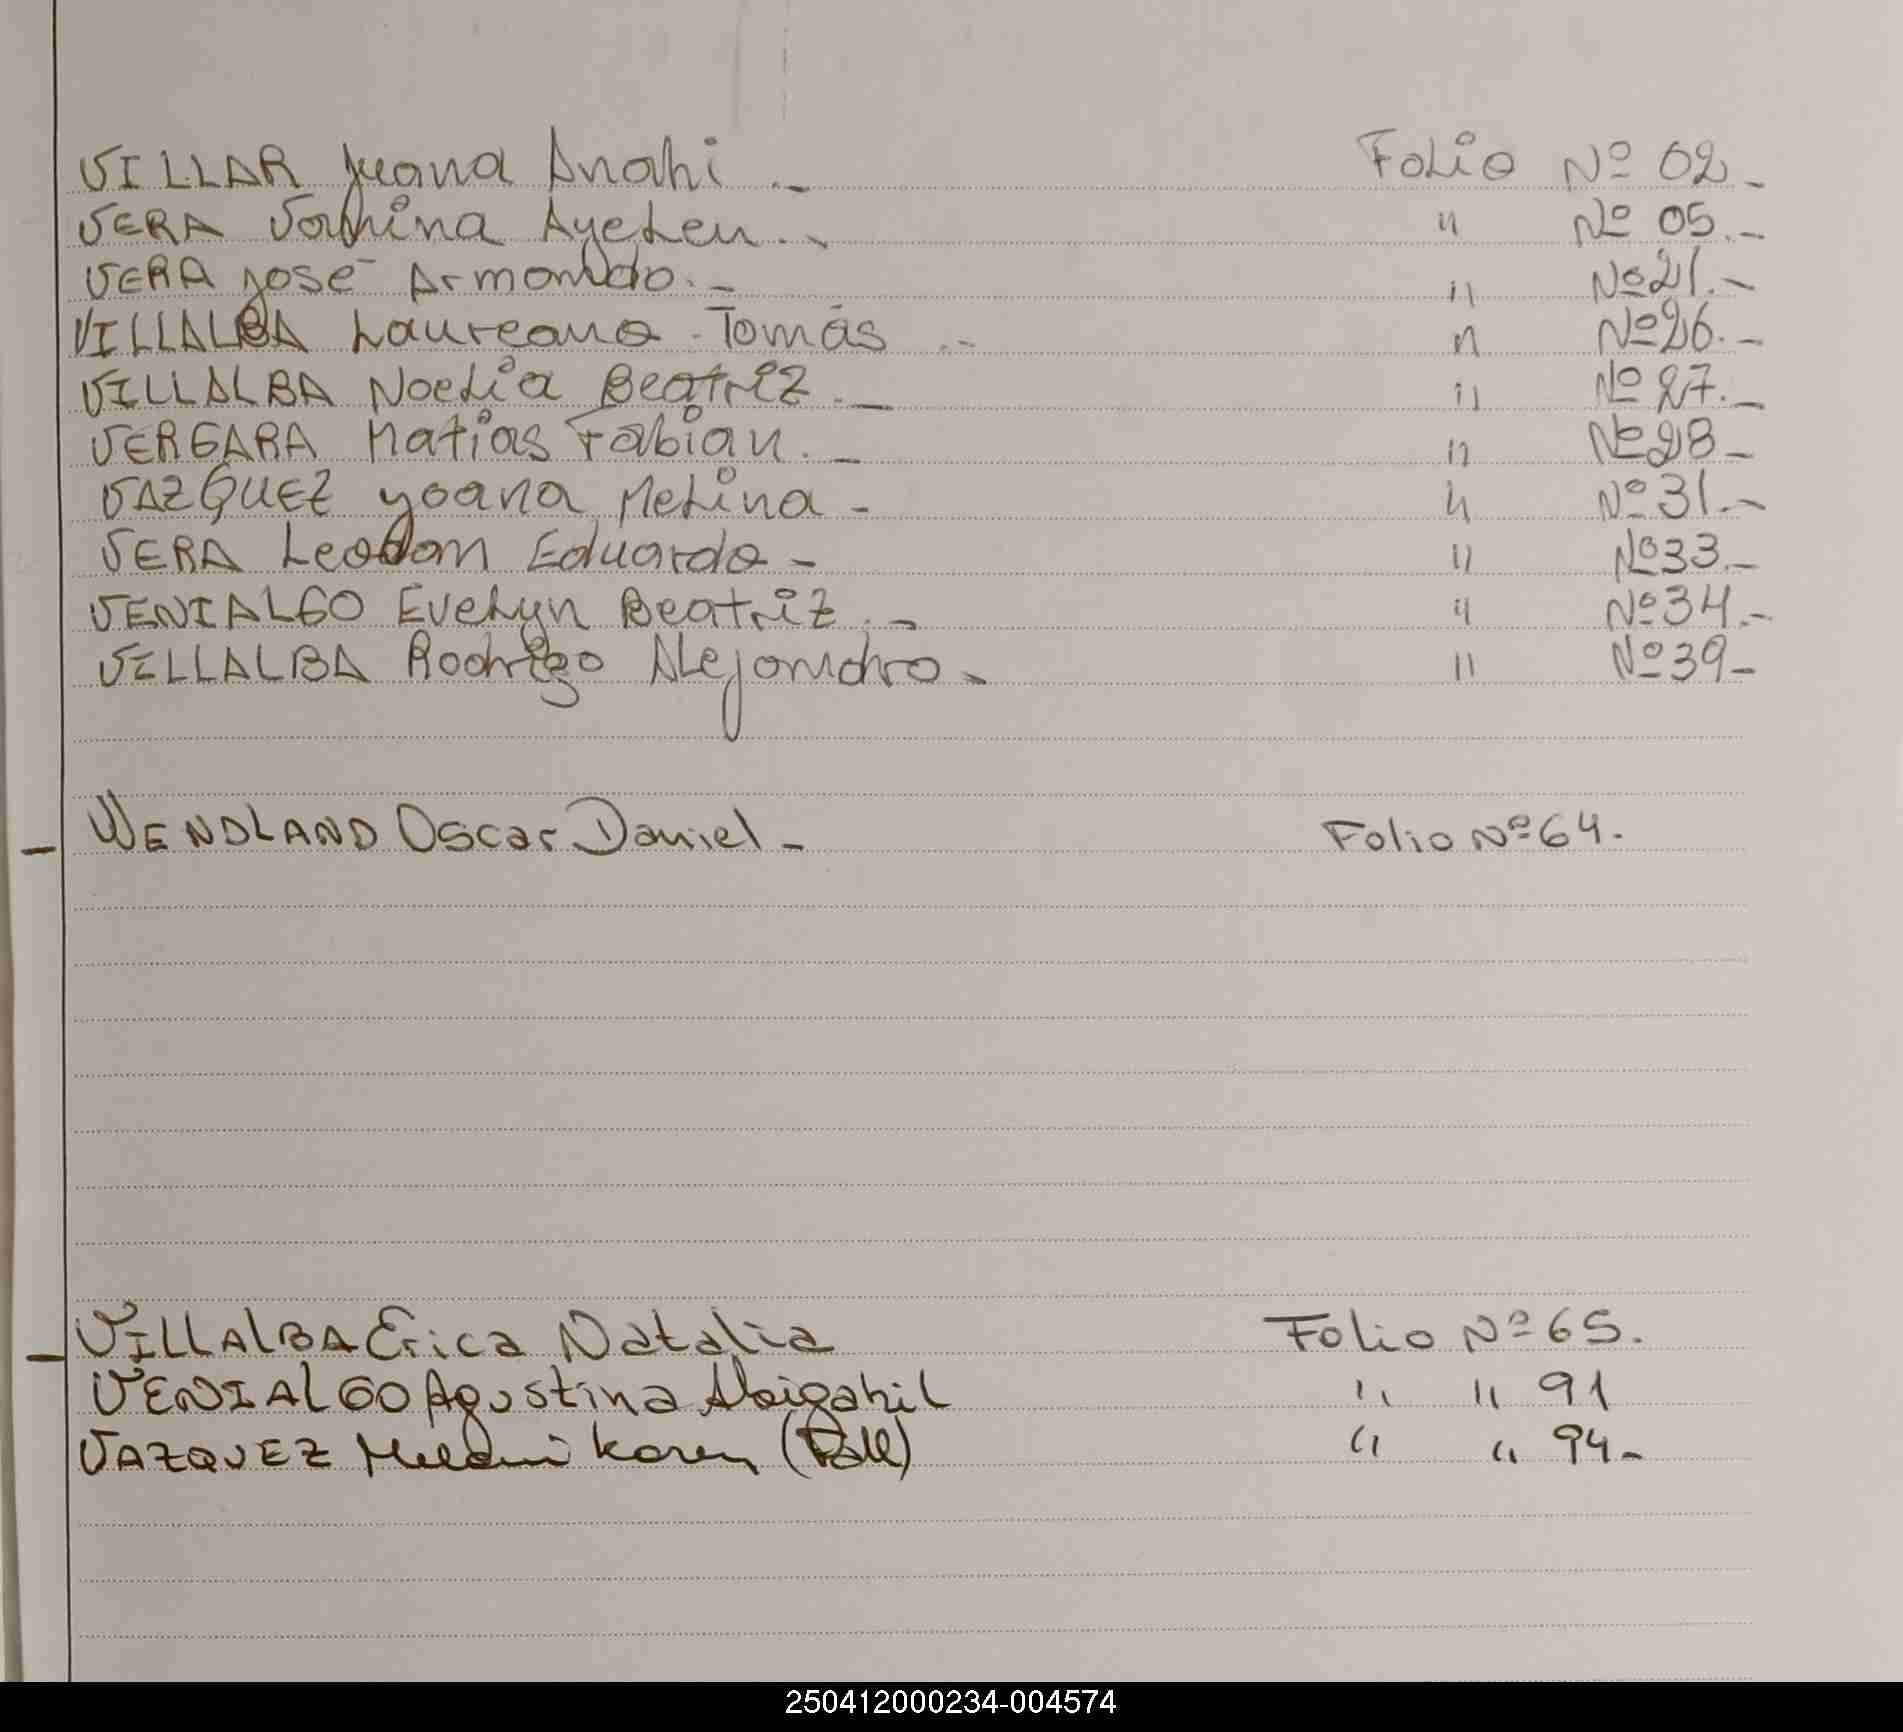 VILLAR Juana Anahi .- Folio Nº 02.-
VERA Yamina Ayelen.- " Nº 05.-
VERA José Armando.- " Nº 21.-
VILLALBA Laureano Tomás .- " Nº 26.-
VILLALBA Noelia Beatriz.- " Nº 27.-
VERGARA Matias Fabian.- " Nº 28-
VAZQUEZ yoana Melina - " Nº 31.-
VERA Leodan Eduardo - " Nº 33.-
VENIALGO Evelyn Beatriz.- " Nº 34.-
VILLALBA Rodrigo Alejandro.- " Nº 39-
- WENDLAND Oscar Daniel - Folio Nº 64.
- VILLALBA Erica Natalia Folio Nº 65.
VENIALGO Agustina Abigahil " " 91
VAZQUEZ Melani Karen " " 94-
250412000234-004574